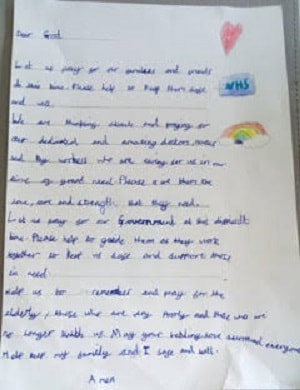 Dear God
Let us pray for our families and friends
at this time. Please help to keep them safe
and well.
We are thinking about and praying for
our dedicated and amazing doctors, nurses
and key workers who are caring for us in our
time of great need. Please give them the
love, care and strength that they need.
Let us pray for our Government at this difficult
time. Please help to guide them as they work
together to keep us safe and support those
in need.
Help us to remember and pray for the
elderly, those who are very poorly and those who are
no longer with us. May your healing love surround everyone
Help keep my family and I safe and well.
Amen
NHS